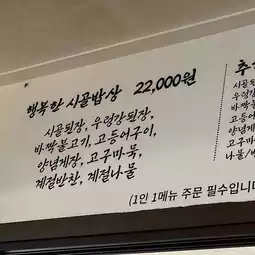 행복한 시골밥상 22,000원
시골된장, 우렁강된장,
바싹불고기, 고등어구이,
양념게장, 고구마묵,
계절반찬, 계절나물
(1인 1메뉴 주문 필수입니다
추
시골된
우렁강
바싹불
고등어
양념게
고구마
나물/반